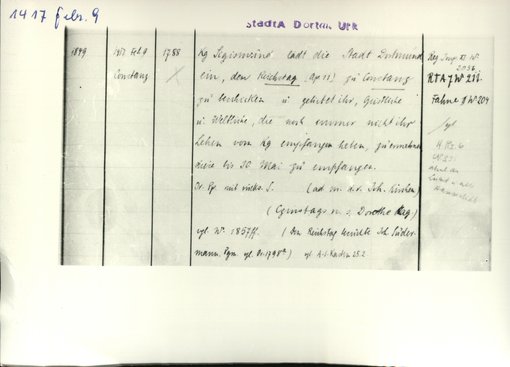 1417 febr. 9
StadtA Dortm. Urk
1849
1417 Febr. 9
Constanz
1788
Kg Sigismund ladt die Stadt Dortmund
ein, den Reichstag (Apr. 11) zu Constanz
zu beschicken u gebietet ihr, Geistliche
u. Weltliche, die noch immer nicht ihr
Lehen vom Kg empfangen haben, zu ermahnen
diese bis 20. Mai zu empfangen.
Or. Pgt. mit rücks. S. (ad m. d. r. Joh. Kirchen)
(Samstags n. s. Dorothe tag)
vgl. Nr. 1857ff. (Den Reichstag besuchte Joh. Suder-
mann. vgl. Nr. 1798a) vgl. 25.2
Reg Imp. XI Nr
2036
RTA 7 Nr 211.
Fahne II Nr 204
vgl